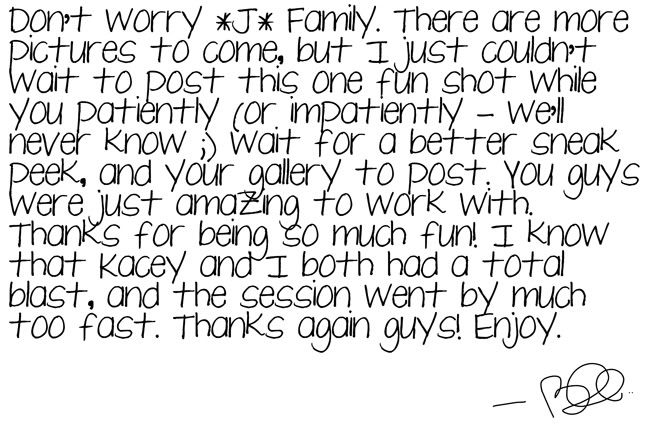 Don't worry *J* Family. There are more
pictures to come, but I just couldn't
wait to post this one fun shot while
you patiently (or impatiently - we'll
never know ;) wait for a better sneak
peek, and your gallery to post. You guys
were just amazing to work with.
Thanks for being so much fun! I know
that Kacey and I both had a total
blast, and the session went by much
too fast. Thanks again guys! Enjoy.